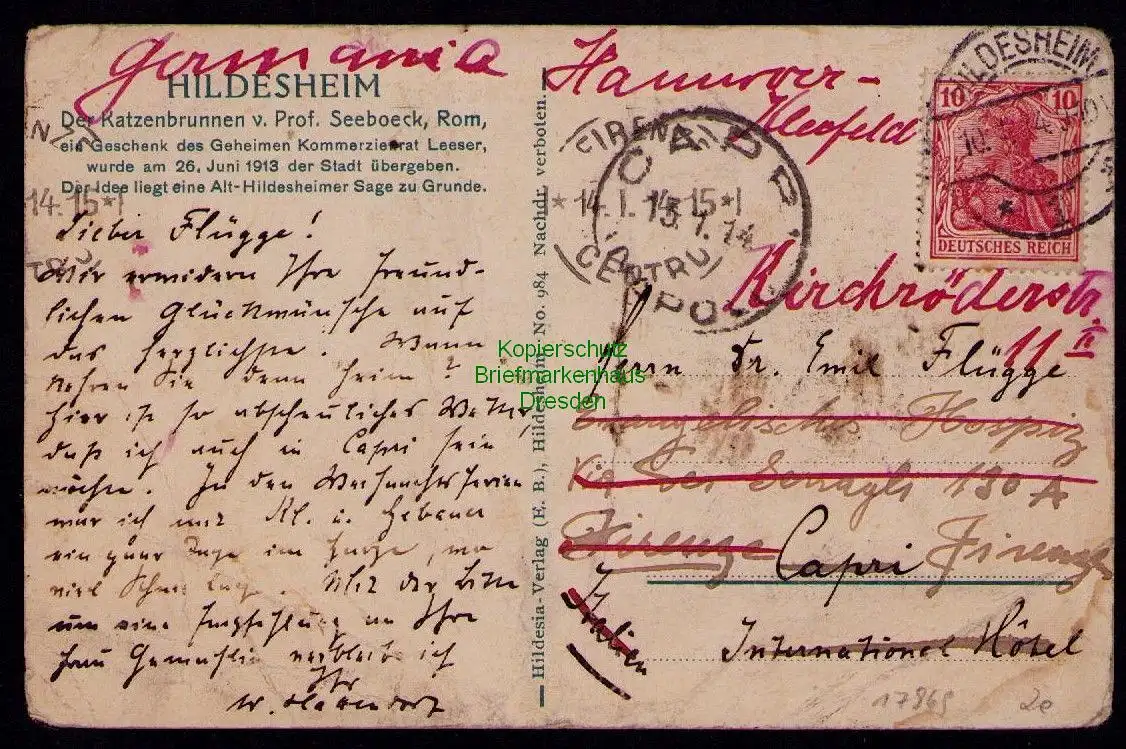 Germania
HILDESHEIM
Der Katzenbrunnen v. Prof. Seeboeck, Rom,
ein Geschenk des Geheimen Kommerzienrat Leeser,
wurde am 26. Juni 1913 der Stadt übergeben.
Der Idee liegt eine Alt-Hildesheimer Sage zu Grunde.
14. 15*1
Lieber Flügge!
Wir erwidern Ihre freund-
lichen Glückwünsche auf
das herzlichste. Wann
kehren Sie denn heim?
Hier ist so abscheuliches Wetter,
daß ich auch in Capri sein
möchte. In den Weihnachtsferien
war ich mit Kl. u. Gebauer
ein paar Tage im Harze, wo
viel Schnee lag. Mit der Bitte
um eine Empfehlung an Ihre
Frau Gemahlin verbleibe ich
Ihr
W.
Hildesia-Verlag (E. B.), Hildesheim No. 984 Nachdr. verboten.
Hannover-
Kleefeld
Kirchröderstr.
11 II
HILDESHEIM
10 10
DEUTSCHES REICH
FIRENZE
* 14. 1. 14-15*1
CENTRO
CAPRI
15. 1. 14
NAPOLI
Herrn Dr. Emil Flügge
Evangelisches Hospiz
Via dei Serragli 130 A
Firenze Capri Firenze
Italien
International Hôtel
17869 2e
Kopierschutz
Briefmarkenhaus
Dresden